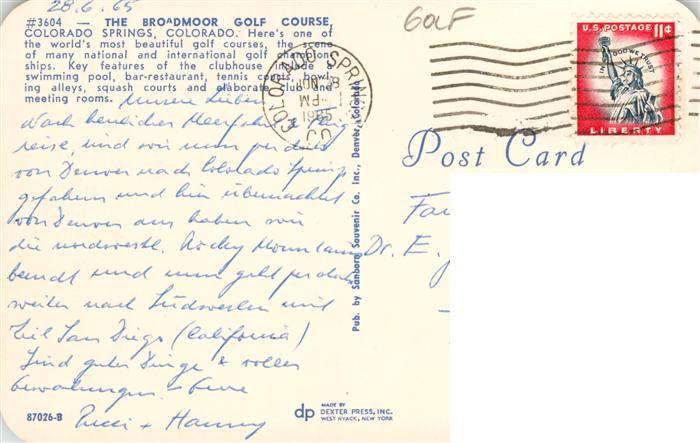 28.6.65
GOLF
#3604 — THE BROADMOOR GOLF COURSE,
COLORADO SPRINGS, COLORADO. Here's one of
the world's most beautiful golf courses, the scene
of many national and international golf champion-
ships. Key features of the clubhouse include a
swimming pool, bar-restaurant, tennis courts, bowl-
ing alleys, squash courts and elaborate club and
meeting rooms.
Unsere Lieben
Nach herrlicher Meerfahrt & Flug-
reise, sind wir nun per
von Denver nach Colorado Springs
gefahren und hier übernachtet
von Denver aus haben wir
die nordwestl. Rocky Mountains
bereist und nun geht per
weiter nach Südwesten mit
Ziel San Diego (California)
Sind guter Dinge & voller
Eure
+ Hanny
87026-B
COLORADO SPRINGS
PM
1965
Pub. by Sanborn Souvenir Co. Inc., Denver, Colorado
dp MADE BY
DEXTER PRESS, INC.
WEST NYACK, NEW YORK
U.S. POSTAGE 11¢
IN GOD WE TRUST
LIBERTY
Post Card
Fa
Dr. E.